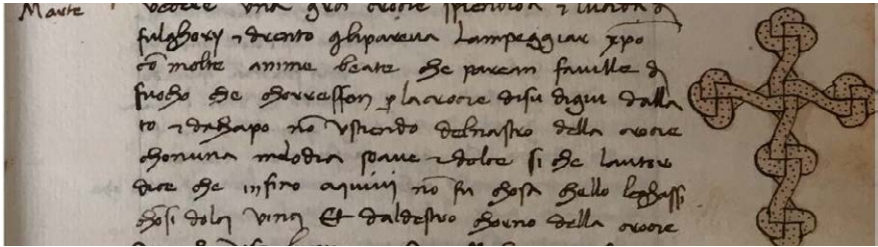 Marte
vedere una grā crocie splendida ⁊ lucida d
fulghory ⁊ drento glipareva lampeggiar xp̄o
cō molte anime beate che parean faville d
fuocho che chorresson p̱ la crocie disu digiu dalla
to ⁊ dachapo nō usciendo delnastro della crocie
chonuna melodia soave ⁊ dolce si che lautor
dice che infino aquivi nō fu chosa chello leghassi
chōsi dolci vinci Et daldestro chorno della crocie